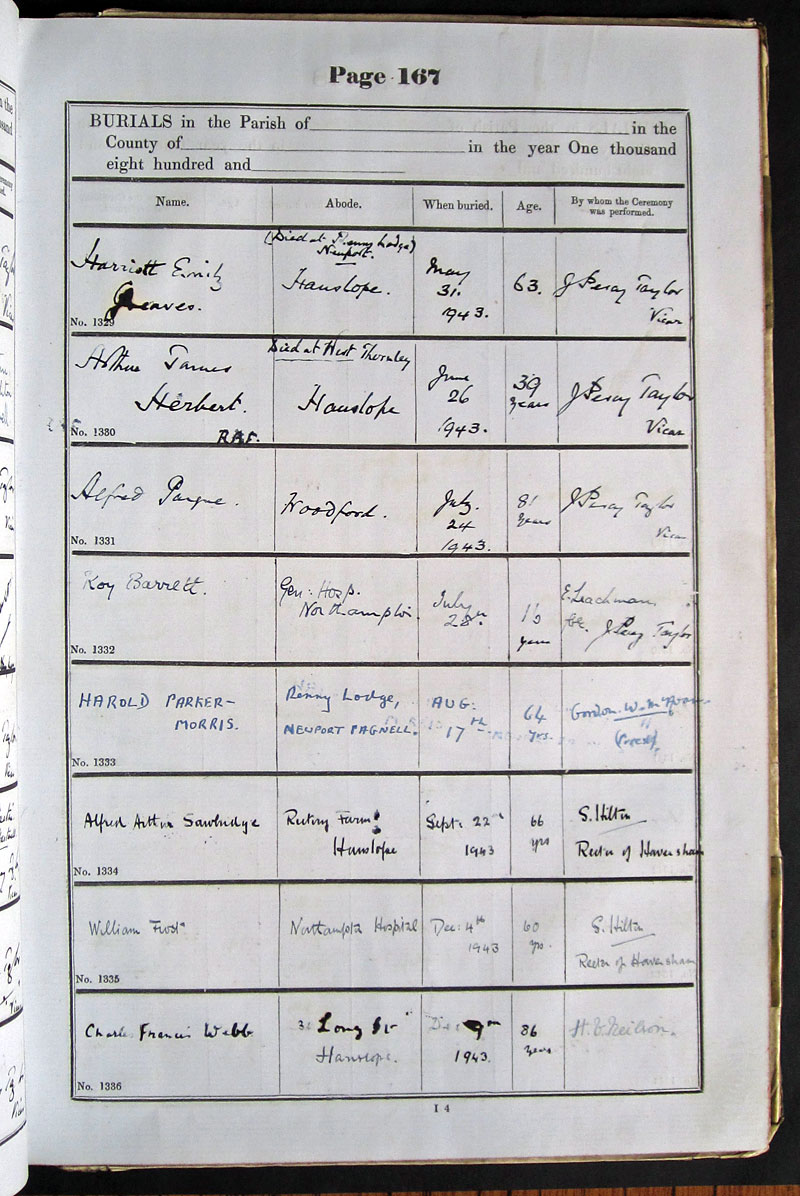 Page 167
BURIALS in the Parish of in the
County of in the year One thousand
eight hundred and
Name. Abode. When buried. Age. By whom the Ceremony was performed.
(Died at Renny Lodge)
Newport.
Harriett Emily
Greaves.
Hanslope.
May
31.
1943.
63.
J Percy Taylor
Vicar
No. 1329
Died at West Thornley
Arthur James
Herbert.
R.A.F.
Hanslope
June
26
1943.
39
years
J Percy Taylor
Vicar
No. 1330
Alfred Payne.
Woodford.
July.
24
1943.
81
years
J Percy Taylor
Vicar
No. 1331
Roy Barrett.
Gen: Hosp.
Northampton.
July
28.
years
E. Leachman
J Percy Taylor
No. 1332
HAROLD PARKER-
MORRIS.
Renny Lodge,
NEWPORT PAGNELL.
AUG:
17th
64
yrs.
Gordon W.
(Priest).
No. 1333
Alfred Arthur Sawbridge
Rectory Farm
Hanslope
Sept: 22nd
1943
66
yrs
S. Hilton
Rector of Haversham
No. 1334
William Frost
Northampton Hospital
Dec: 4th
1943
60
yrs.
S. Hilton
Rector of Haversham
No. 1335
Charles Francis Webb
Long St
Hanslope.
Dec 9th
1943.
86
years
H. E. Neilson.
No. 1336
I 4